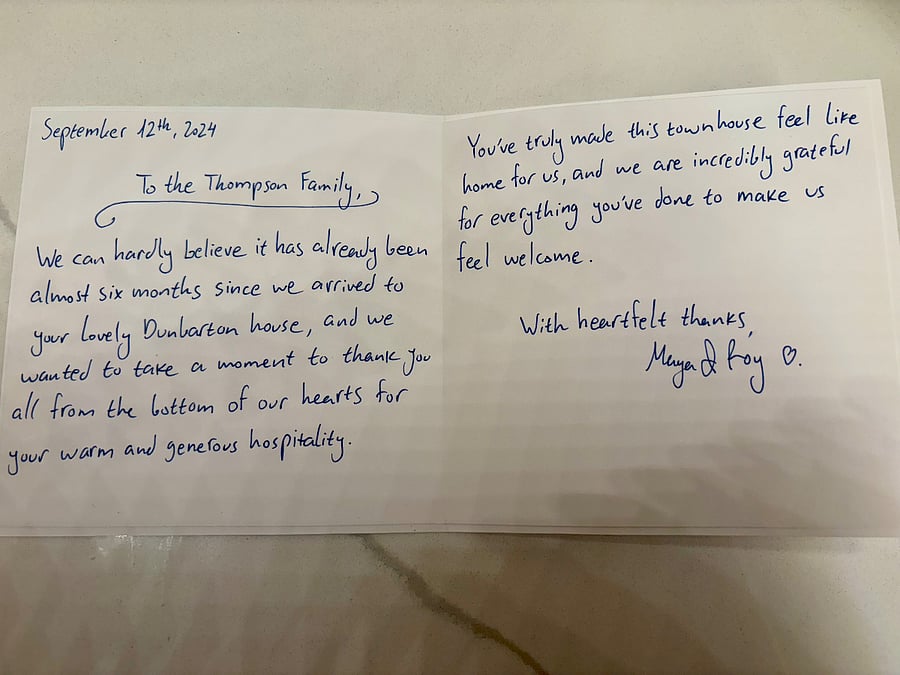 September 12th, 2024
To the Thompson Family,
We can hardly believe it has already been
almost six months since we arrived to
your lovely Dunbarton house, and we
wanted to take a moment to thank you
all from the bottom of our hearts for
your warm and generous hospitality.
You've truly made this townhouse feel like
home for us, and we are incredibly grateful
for everything you've done to make us
feel welcome.
With heartfelt thanks,
Maya & Roy ♡.